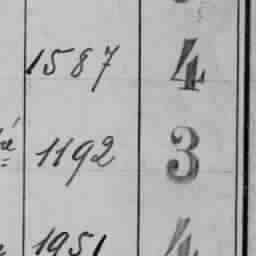 1587 4
1192 3
1951 4